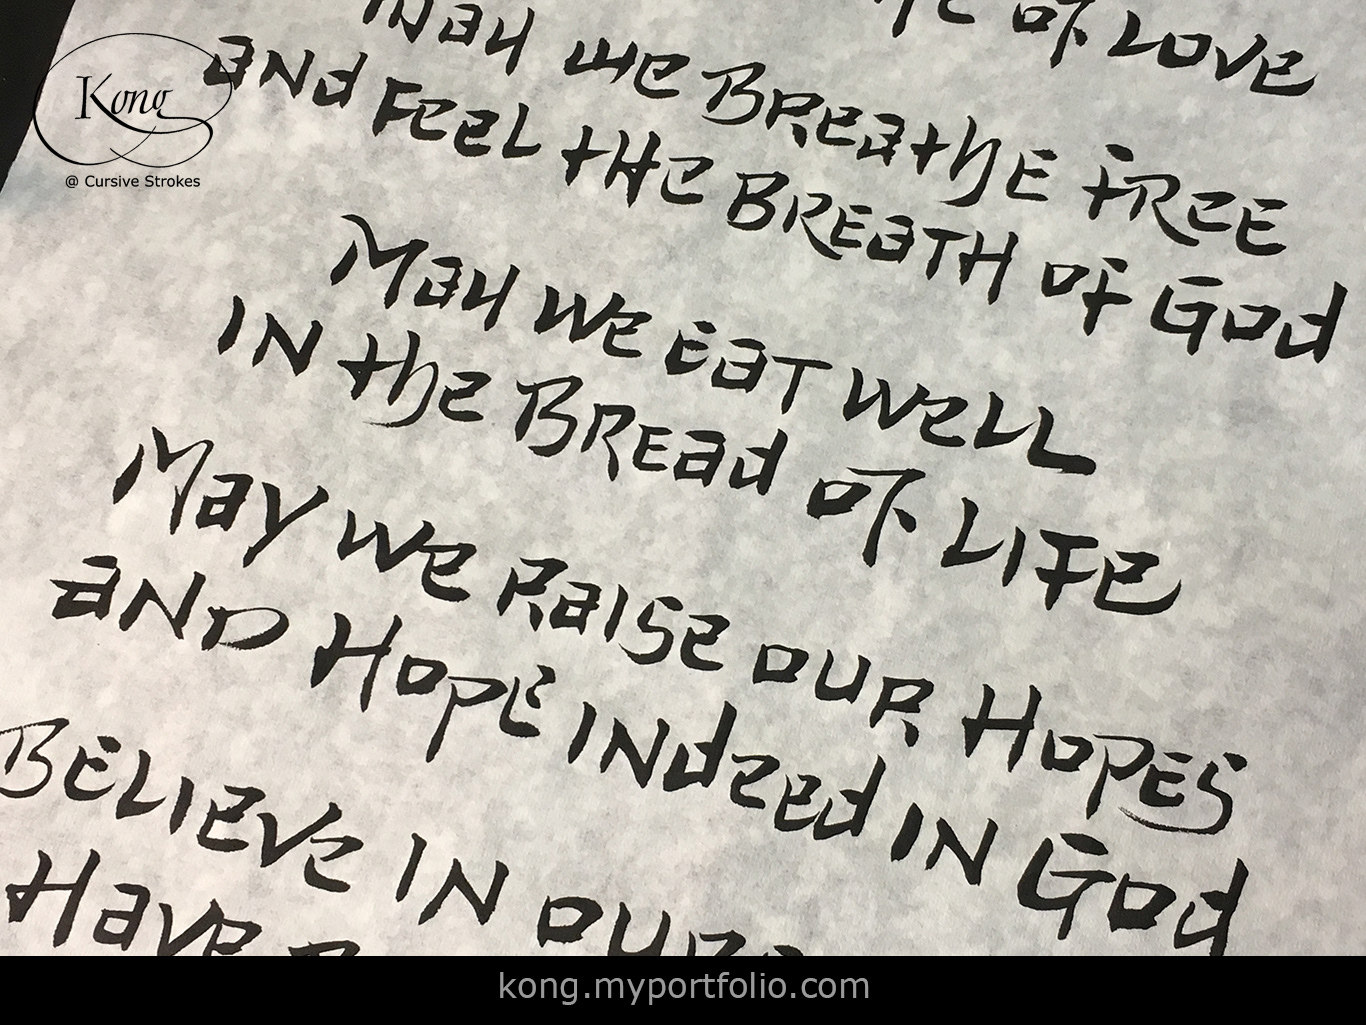 of Love
May we Breathe Free
and Feel the Breath of God
May we Eat Well
in the Bread of Life
May we Raise our Hopes
and Hope indeed in God
Believe in
Have
Kong
@ Cursive Strokes
kong.myportfolio.com